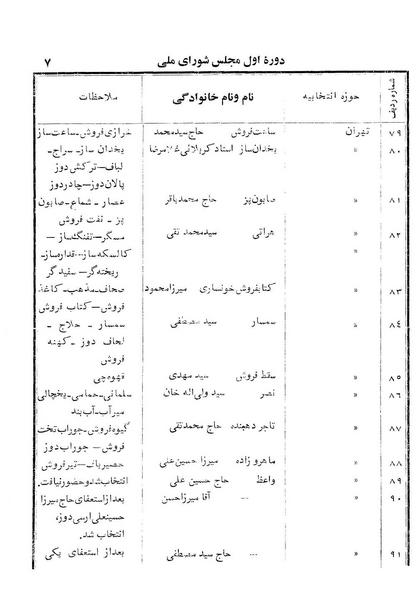 دورهٔ اول مجلس شورای ملی ۷
شماره ردیف حوزه انتخابیه نام ونام خانوادگی ملاحظات
۷۹ تهران ساعت‌فروش حاج‌سیدمحمد خرازی‌فروش-ساعت‌ساز
۸۰ » یخدان‌ساز استاد کربلائی غلامرضا یخدان‌ساز-سراج-
لباف-ترکش دوز
پالان‌دوز-چادردوز
۸۱ » صابون‌پز حاج محمدباقر عصار-شماع-صابون
پز-نفت فروش
۸۲ » هراتی سیدمحمد تقی مسگر-تفنگ‌ساز-
» کالسکه‌ساز-قداره‌ساز-
ریخته‌گر-سفیدگر
۸۳ » کتابفروش‌خونساری میرزامحمود صحاف-مذهب-کاغذ
فروش-کتاب فروش
۸۴ » سمسار سید مصطفی سمسار-حلاج-
لحاف دوز-کهنه
فروش
۸۵ » سقط فروش سید مهدی قهوه‌چی
۸۶ » نصر سید ولی‌اله خان سلمانی-حمامی-یخچالی
میرآب-آب‌بند
۸۷ » تاجر دهنده حاج محمدتقی گیوه‌فروش-جوراب‌تخت
فروش-جوراب دوز
۸۸ » ماهرو زاده میرزا حسین‌علی حصیرباف-تیرفروش
۸۹ » واعظ حاج حسین علی انتخاب‌شد و حضور نیافت.
۹۰ » ... آقا میرزاحسن بعداز استعفای حاج میرزا
حسینعلی ارسی دوز،
انتخاب شد.
۹۱ » ... حاج سید مصطفی بعداز استعفای یکی